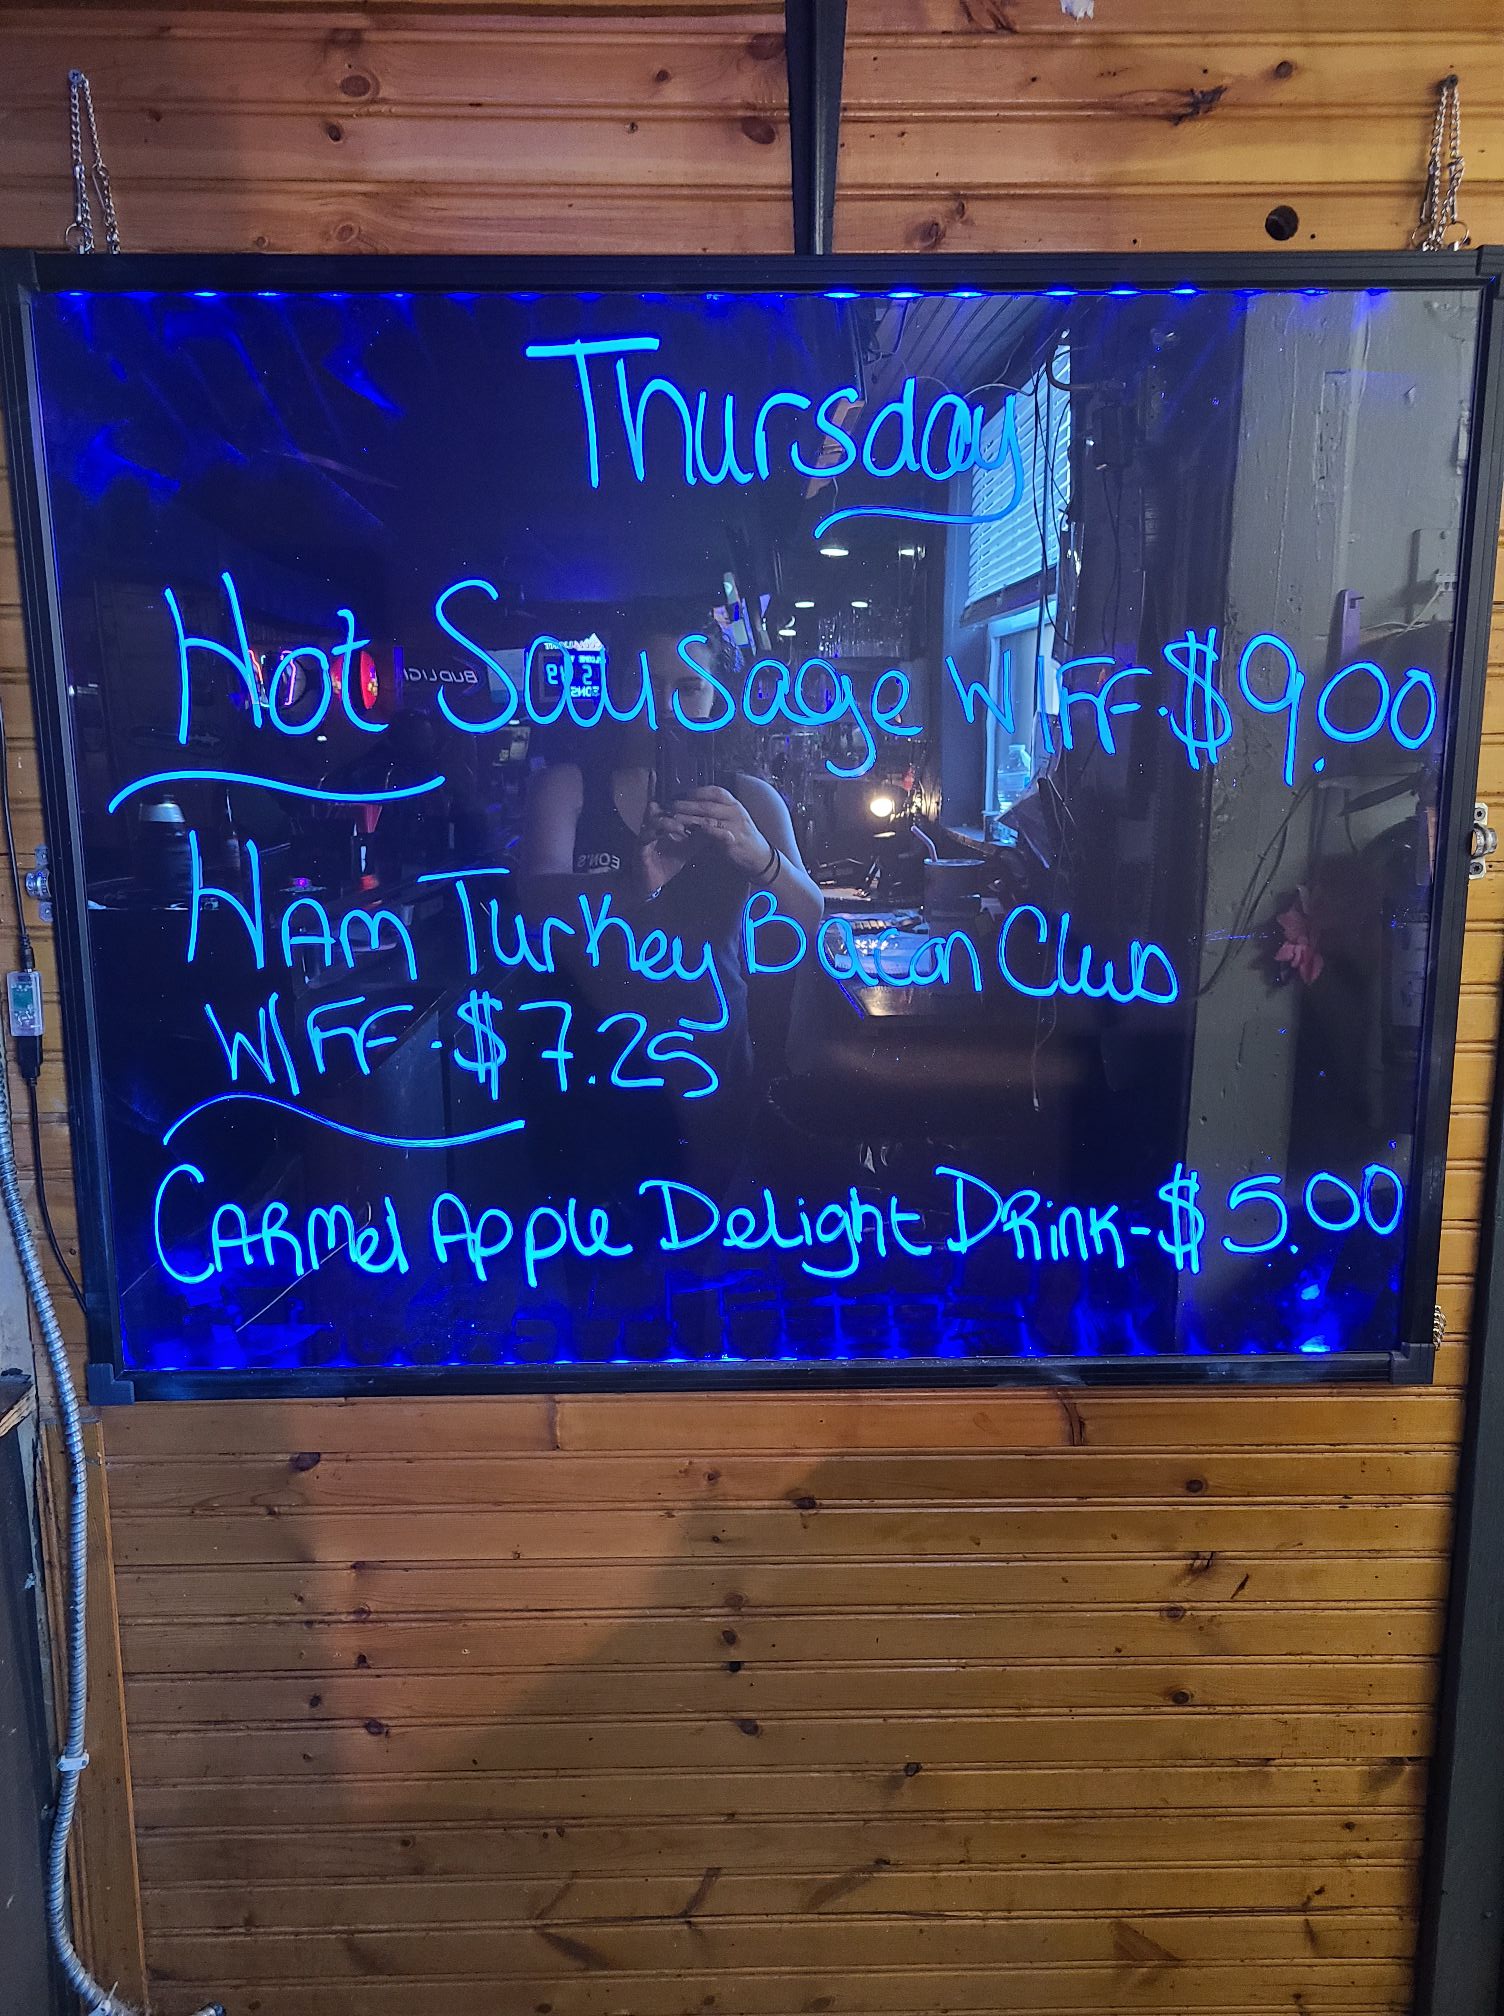 Thursday
Hot Sausage W/FF-$9.00
HAM Turkey Bacon Club
W/FF-$7.25
CARMel Apple Delight DRink-$5.00